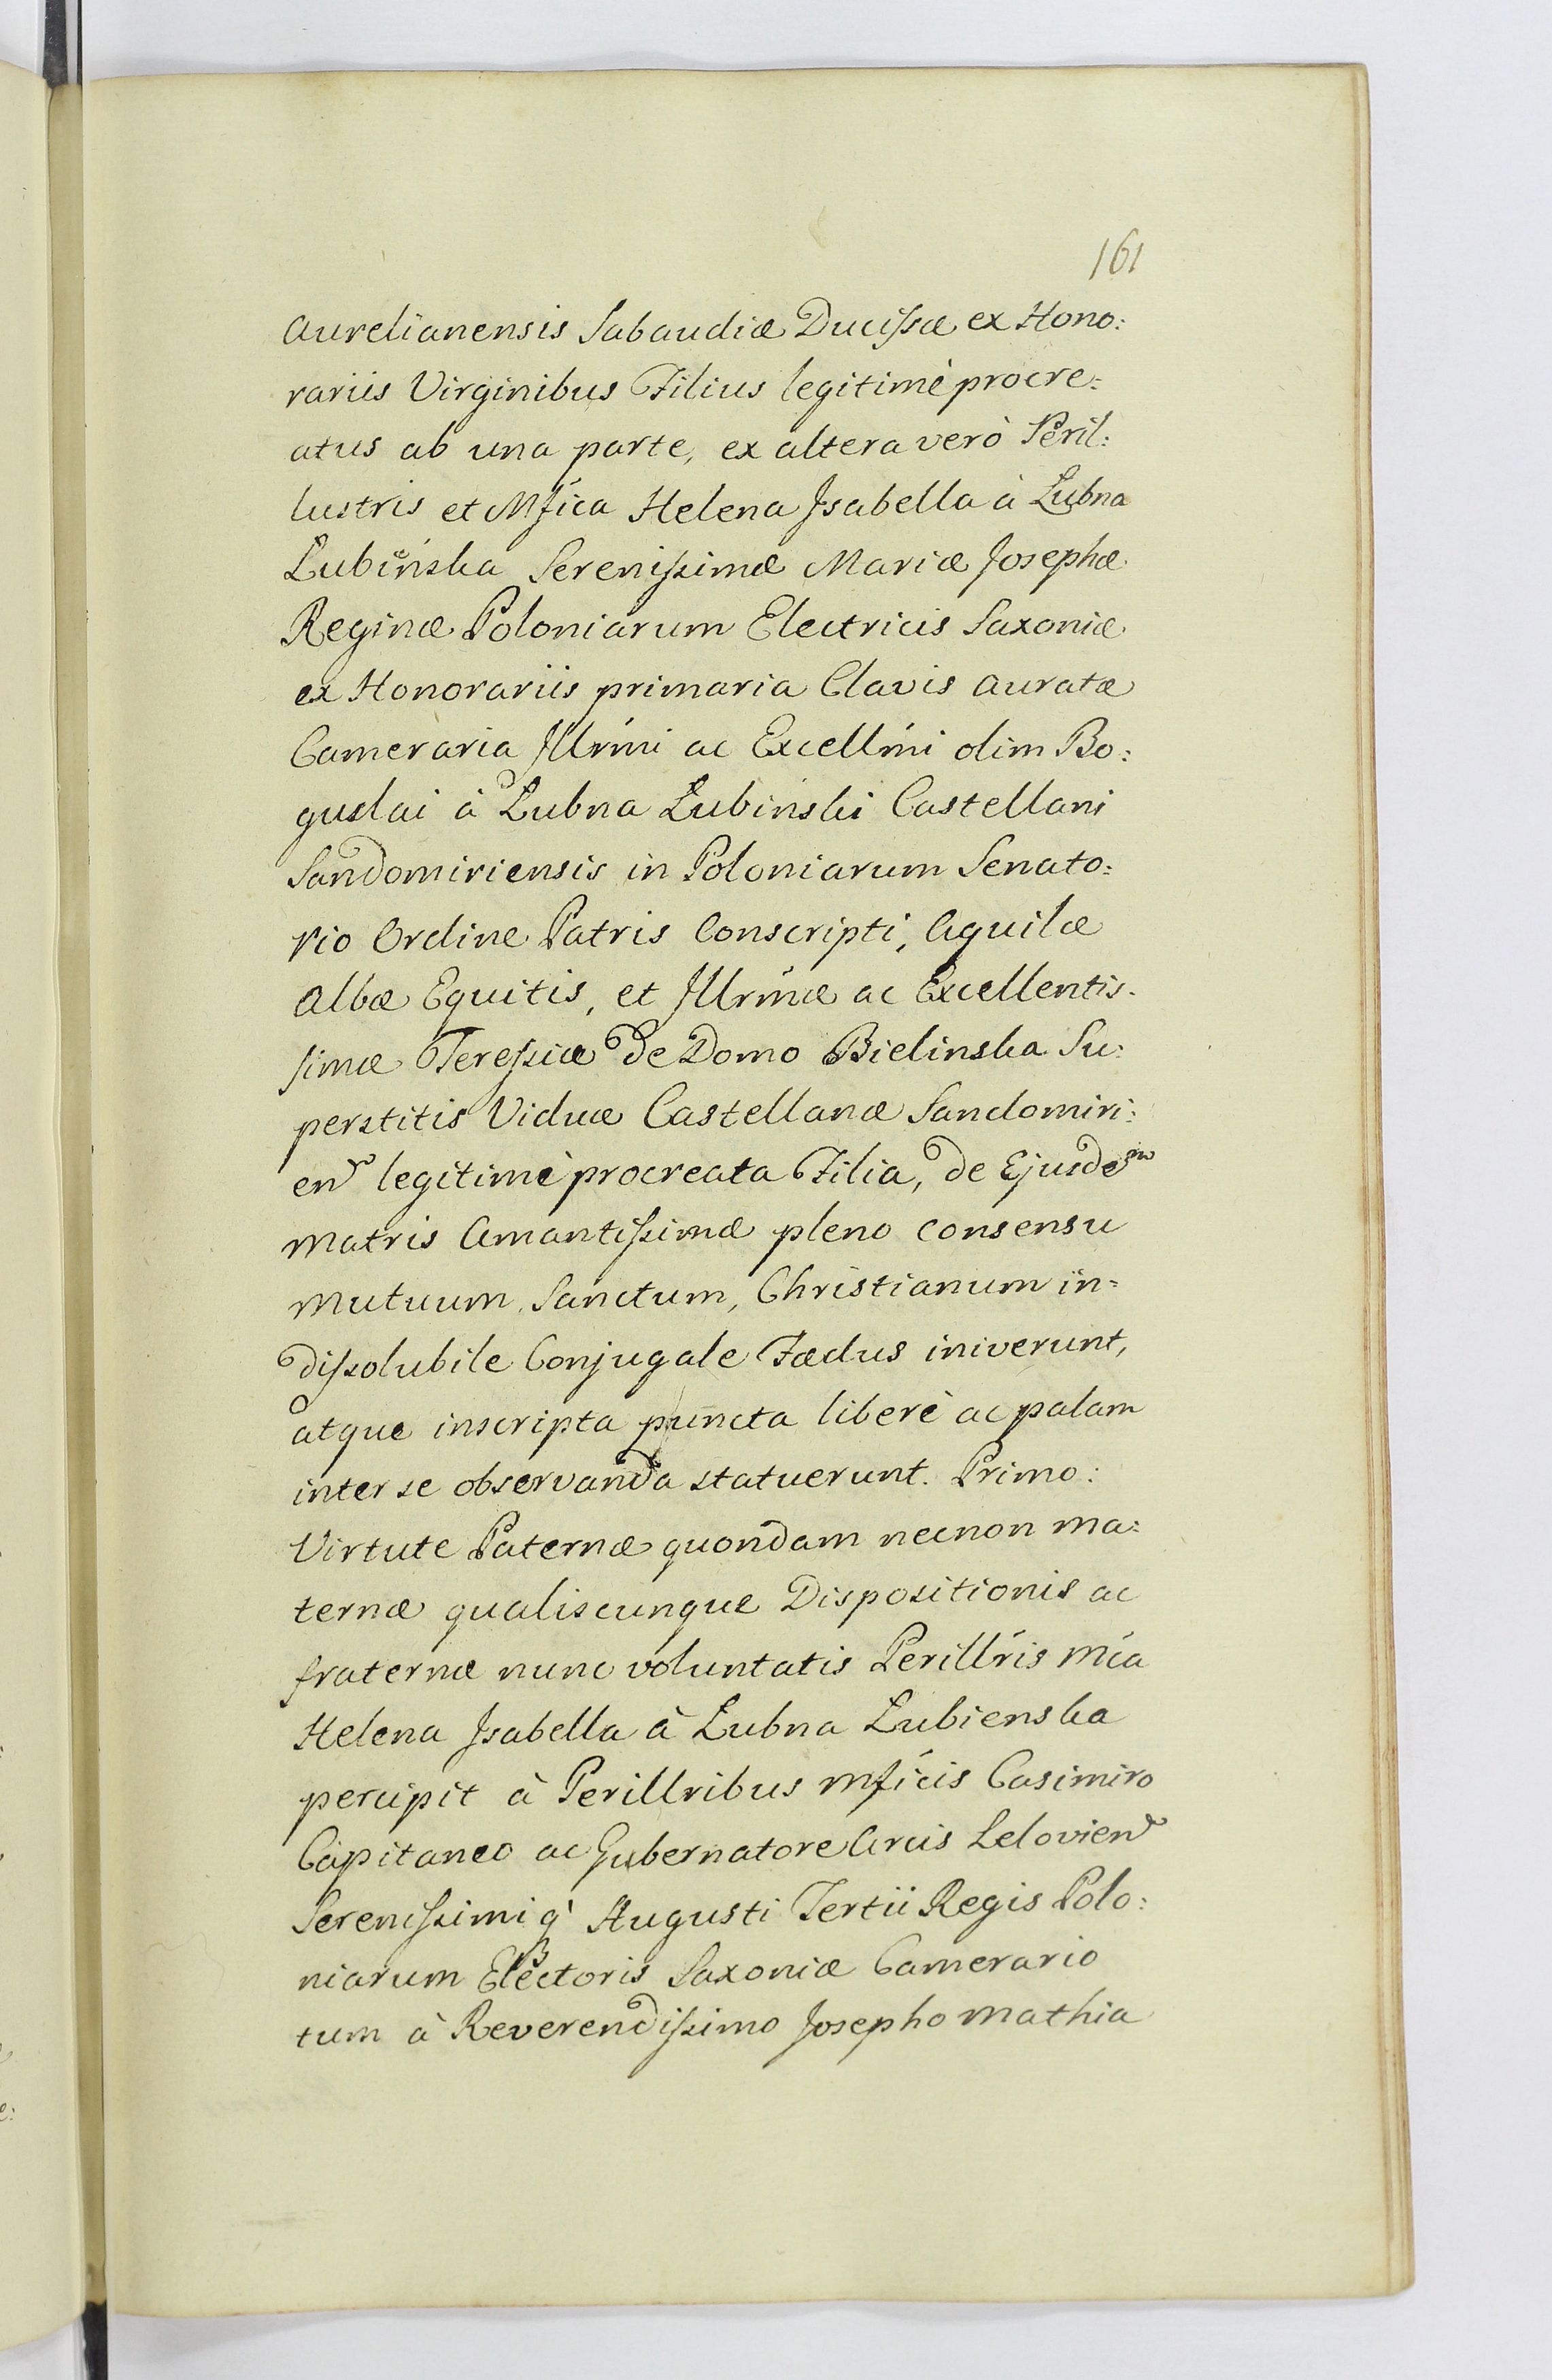 161
Aurelianensis Sabaudiæ Ducissæ ex Hono:
rariis Virginibus Filius legitimè procre:
atus ab una parte, ex altera verò Peril:
lustris et Mfica Helena Isabella à Łubna
Łubieńska Serenissimæ Mariæ Josephæ
Reginæ Poloniarum Electricis Saxoniæ
ex Honorariis primaria Clavis auratæ
Cameraria Jllrmi ac Excellmi olim Bo:
guslai à Łubna Łubinski Castellani
Sandomiriensis in Poloniarum Senato:
rio Ordine Patris Conscripti, Aquilæ
Albæ Equitis, et Jllrmæ ac Excellentis-
simæ Teressiæ de Domo Bielinska Su:
perstitis Viduæ Castellanæ Sandomiri:
en legitimè procreata Filia, de Ejusdem
Matris Amantissimæ pleno consensu
Mutuum, Sanctum, Christianum in=
dissolubile Conjugale Fædus iniverunt,
atque inscripta puncta liberè ac palam
inter se observanda statuerunt. Primo:
Virtute Paternæ quondam necnon ma:
ternæ qualiscunque Dispositionis ac
fraternæ nunc voluntatis Perillris Mca
Helena Isabella à Łubna Łubienska
percipit à Perillribus Mficis Casimiro
Capitaneo ac Gubernatore Arcis Lelovien
Serenissimi q̀ Augusti Tertii Regis Polo:
niarum Electoris Saxoniæ Camerario
tum à Reverendissimo Josepho Mathia